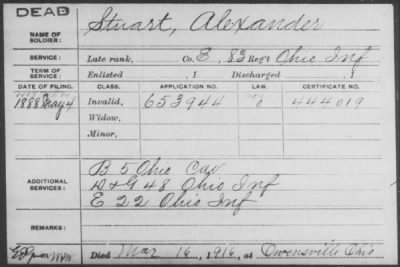 DEAD
NAME OF SOLDIER: Stuart, Alexander
SERVICE: Late rank, Co. E, 83 Reg't Ohio Inf
TERM OF SERVICE: Enlisted , 1 Discharged , 1
DATE OF FILING. CLASS. APPLICATION NO. LAW. CERTIFICATE NO.
1888 May 4 Invalid, 653944 444019
Widow,
Minor,
ADDITIONAL SERVICES: B 5 Ohio Cav
D & G 48 Ohio Inf
E 22 Ohio Inf
REMARKS:
Died Mar 16, 1916, at Owensville Ohio